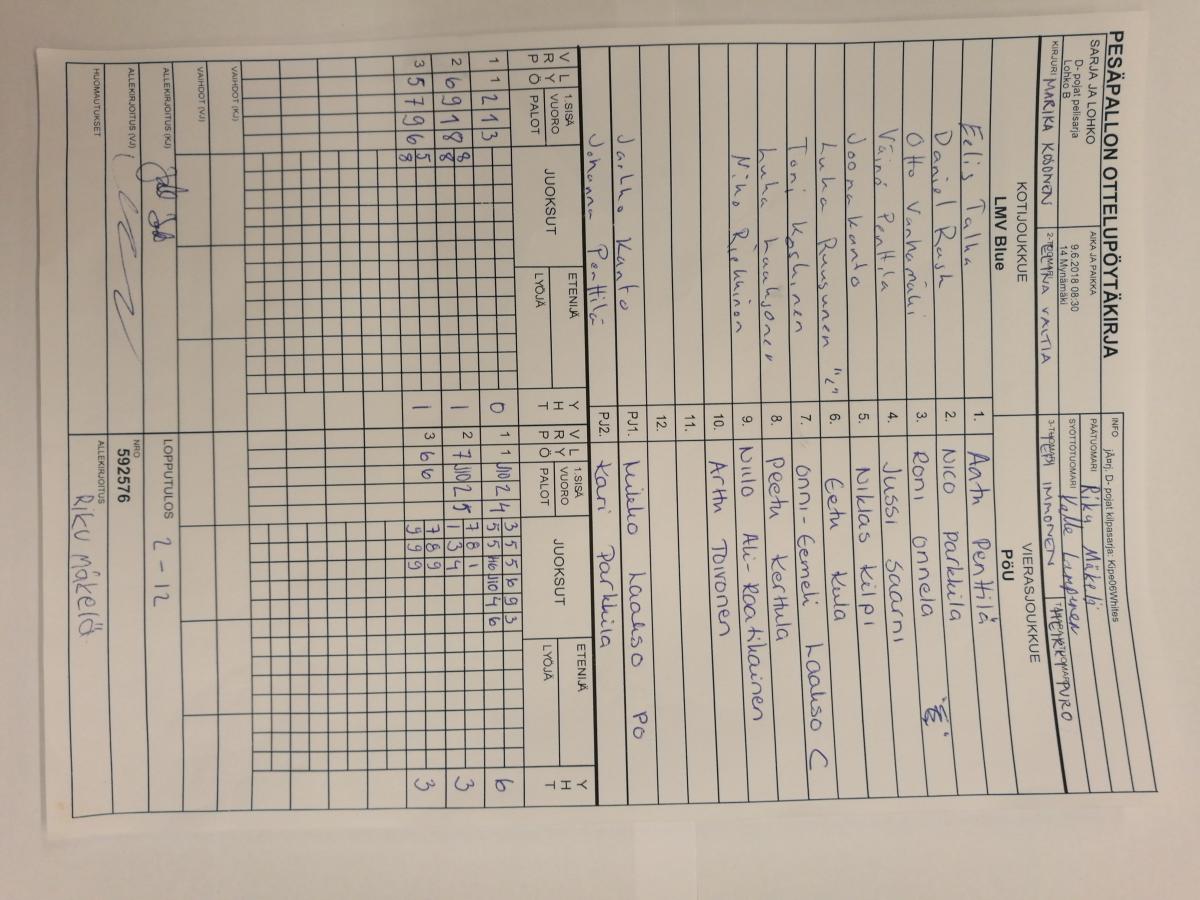 PESÄPALLON OTTELUPÖYTÄKIRJA
INFO jA¤rj. D- pojat kilpasarja: Kipe06Whites
SARJA JA LOHKO
D- pojat pelisarja
Lohko B
AIKA JA PAIKKA
9.6.2018 08:30
14 Mynämäki
PÄÄTUOMARI Riku Mäkelä
SYÖTTÖTUOMARI Kalle Lampinen
KIRJURI MARIKA KOSONEN
2-TUOMARI ELINA VALTIA
3-TUOMARI TEPI IMMONEN
PURO
KOTIJOUKKUE VIERASJOUKKUE
LMV Blue PöU
Eelis Talka 1. Aatu Penttilä
Daniel Rask 2. Nico Parkkila
Otto Vanhamäki 3. Roni Onnela
Väinö Penttilä 4. Jussi Saarni
Joona Kanto 5. Niklas Kilpi
Luka Ruusunen "c" 6. Eetu Kula
Toni Koskinen 7. Onni-Eemeli Laakso C
Luka Laaksonen 8. Peetu Kerttula
Niko Riekkinen 9. Niilo Ali-Raatikainen
10. Arttu Toivonen
11.
12.
Jarkko Kanto PJ1. Mikko Laakso PO
Johanna Penttilä PJ2. Kari Parkkila
V R P L Y Ö 1.SISÄ VUORO PALOT JUOKSUT ETENIJÄ LYÖJÄ Y H T V R P L Y Ö 1.SISÄ VUORO PALOT JUOKSUT ETENIJÄ LYÖJÄ Y H T
1 1 2 1 3 0 1 1 J10 2 4 3 5 5 6 9 3 6
5 5 J10 4 6
2 6 9 1 8 8 1 2 7 J10 2 5 7 8 1 3
8 8 1 3 4
3 5 7 9 6 5 1 3 6 6 7 8 9 3
8 8 9 9 9
VAIHDOT (KJ)
VAIHDOT (VJ)
ALLEKIRJOITUS (KJ) LOPPUTULOS 2 - 12
ALLEKIRJOITUS (VJ) NRO
592576
HUOMAUTUKSET ALLEKIRJOITUS
Riku Mäkelä